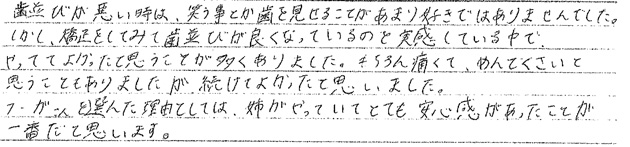 歯並びが悪い時は、笑う事とか歯を見せることがあまり好きではありませんでした。
しかし、矯正をしてみて歯並びが良くなっているのを実感している中で、
やっててよかったと思うことが多くありました。もちろん痛くて、めんどくさいと
思うこともありましたが、続けてよかったと思いました。
を選んだ理由としては、姉がやっていてとても安心感があったことが
一番だと思います。